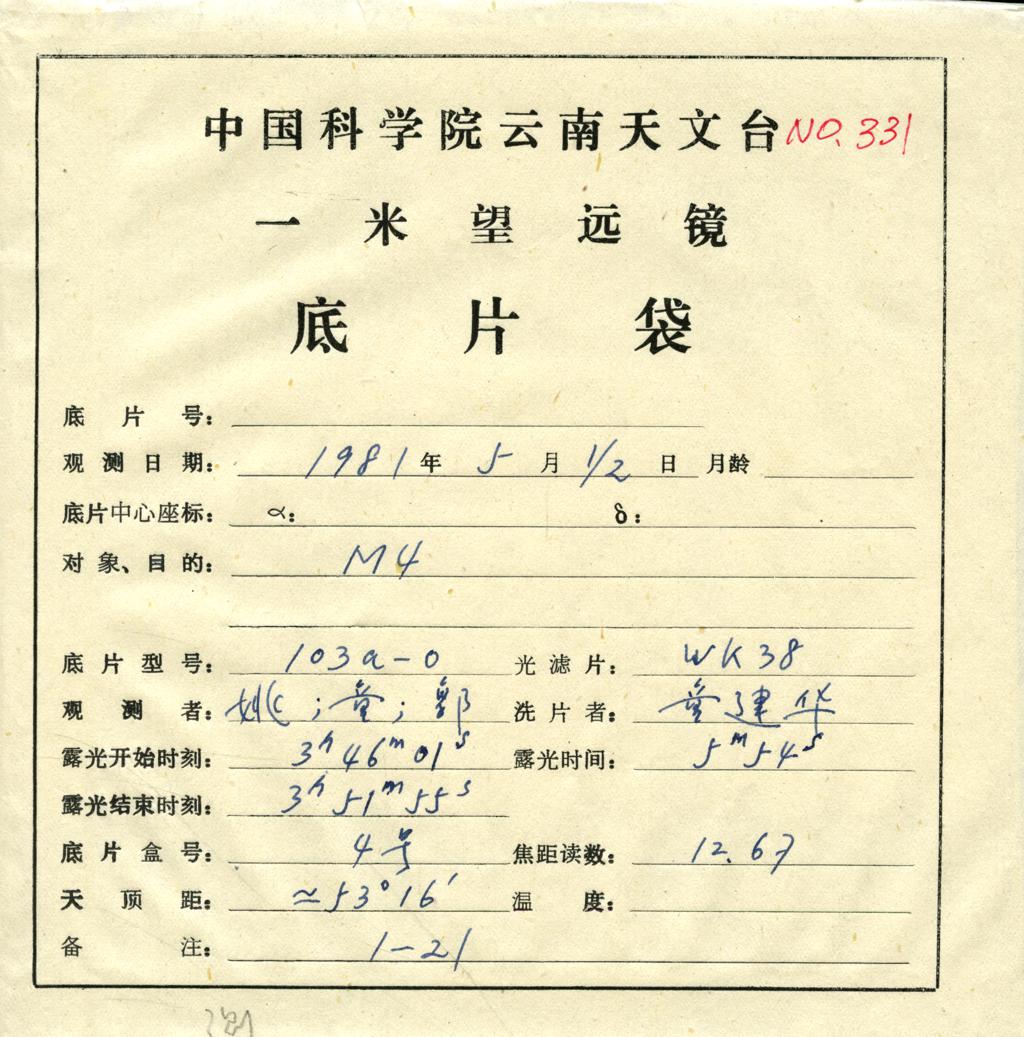 中国科学院云南天文台 NO. 331
一米望远镜
底片袋
底片号：
观测日期： 1981 年 5 月 1/2 日 月龄
底片中心座标： α： δ：
对象、目的： M4
底片型号： 103a-O 光滤片： WK38
观测者： 姚；童；郭 洗片者： 童建华
露光开始时刻： 3h 46m 01s 露光时间： 5m 54s
露光结束时刻： 3h 51m 55s
底片盒号： 4号 焦距读数： 12.67
天顶距： ≈53°16′ 温度：
备注： 1-21